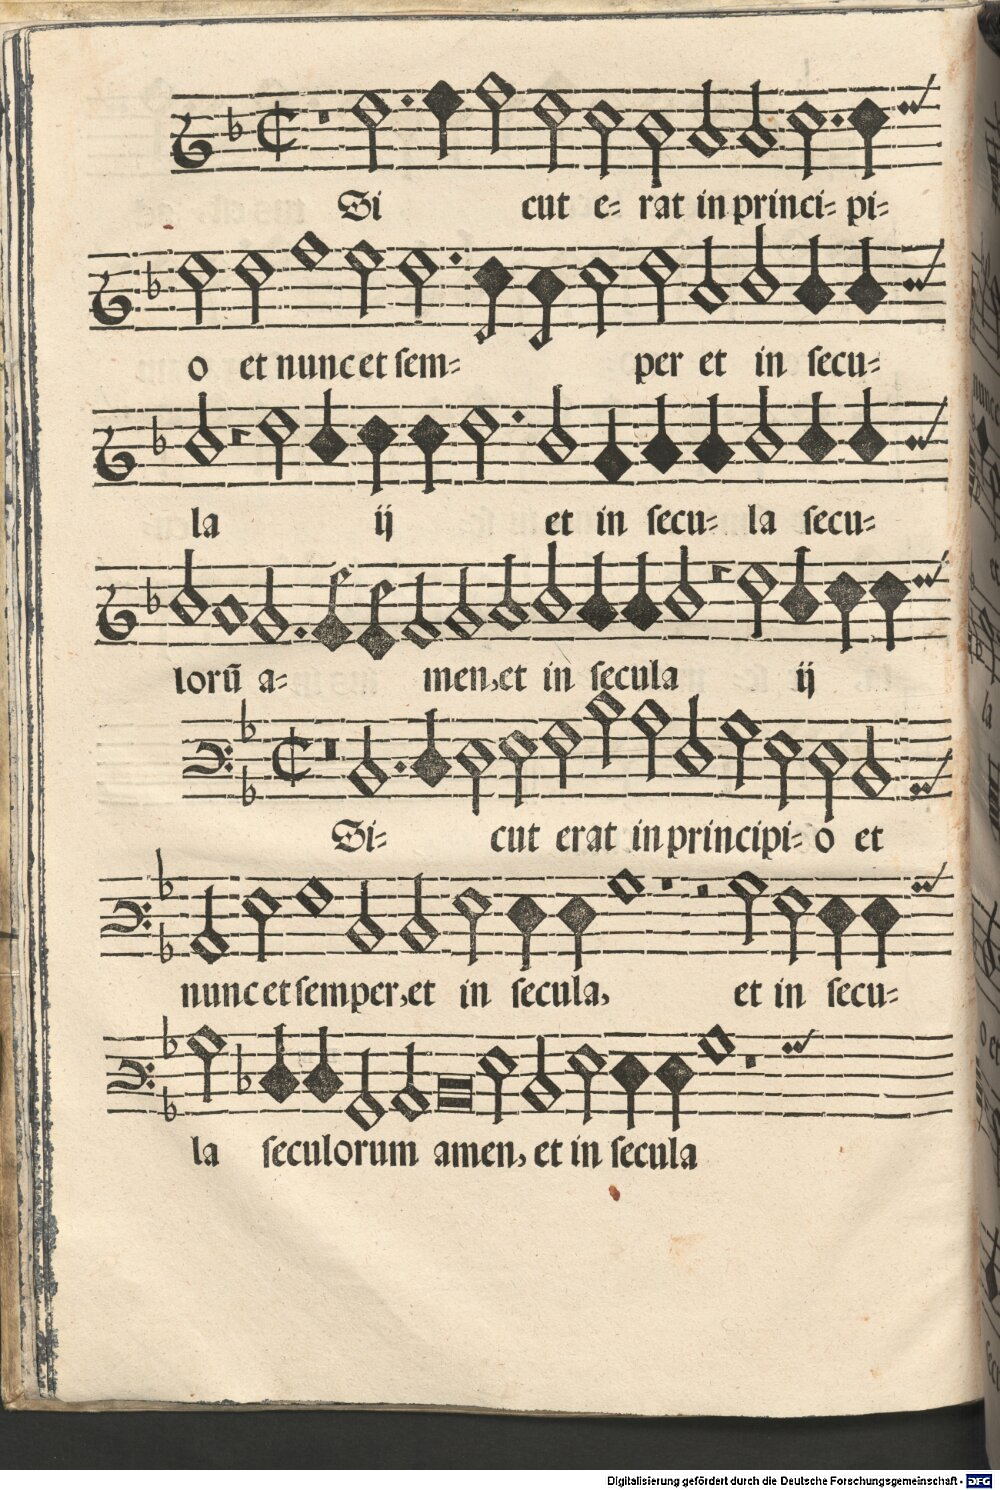 Si cut e- rat in princi- pi-
o et nunc et sem- per et in secu-
la ij et in secu- la secu-
lorū a- men, et in secula ij
Si- cut erat in principi- o et
nunc et semper, et in secula, et in secu-
la seculorum amen, et in secula
Digitalisierung gefördert durch die Deutsche Forschungsgemeinschaft - DFG